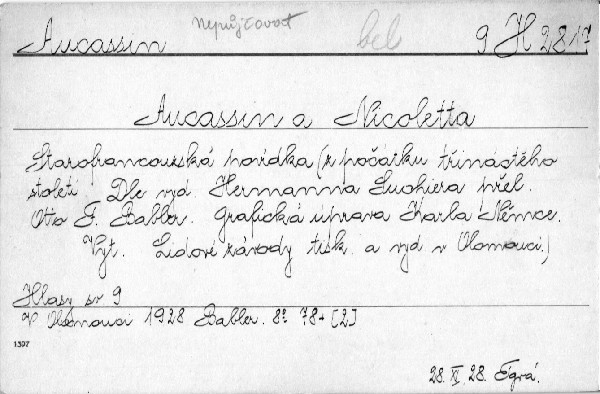 Aucassin nepůjčovat bel 9 H 2817
Aucassin a Nicoletta
Starofrancouzská povídka (z počátku třináctého
století Dle vyd Hermanna Suchiera přel.
Otto F. Babler. Grafická úprava Karla Němce.
Vyt. Lidové závody tisk. a vyd v Olomouci.)
Hlasy sv 9
V Olomouci 1928 Babler. 8° 78+[2]
1397
28. XI. 28. Egrá.